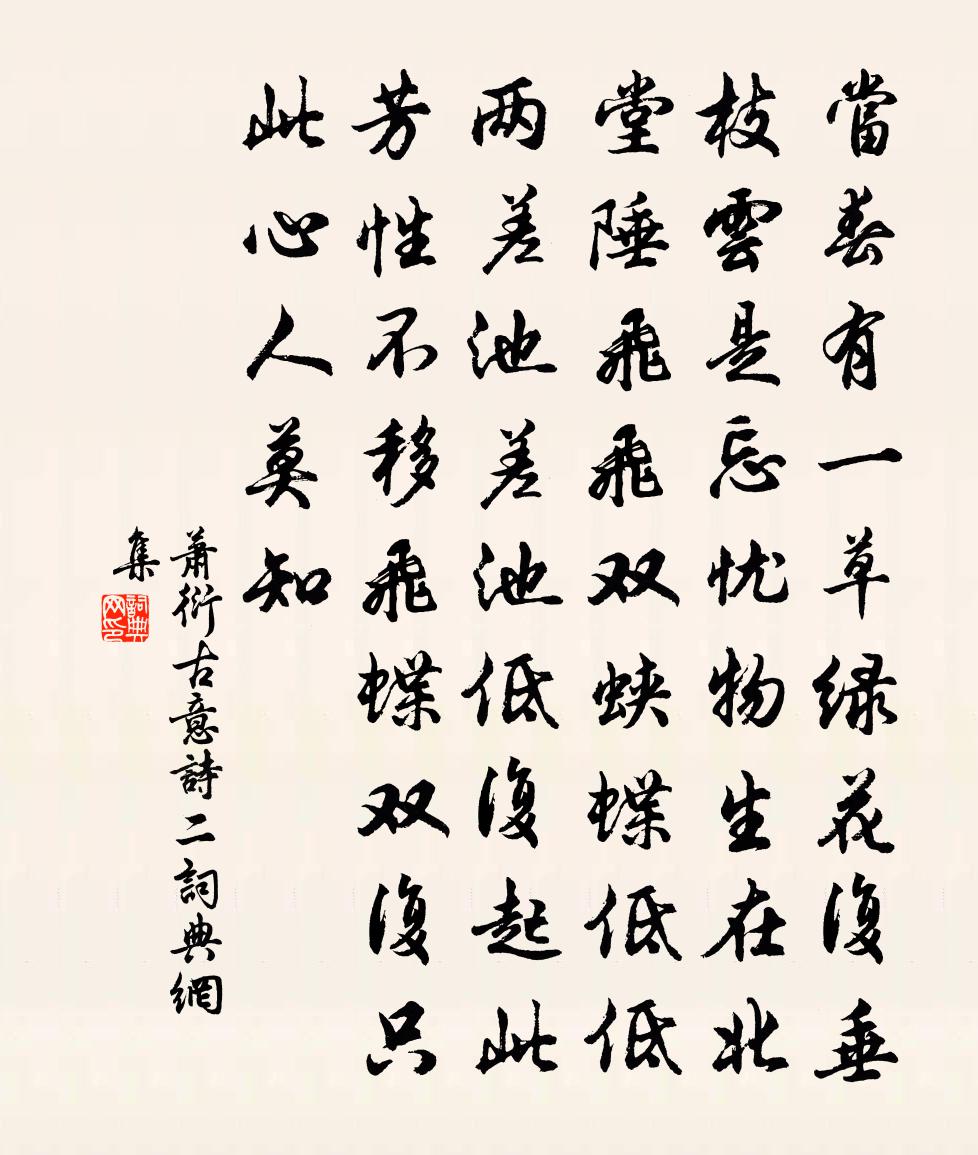 當春有一草绿花復垂
枝雲是忘忧物生在北
堂陲飛飛双蛱蝶低低
两差池差池低復起此
芳性不移飛蝶双復只
此心人莫知
萧衍古意詩二詞典網
集
詞典
网印